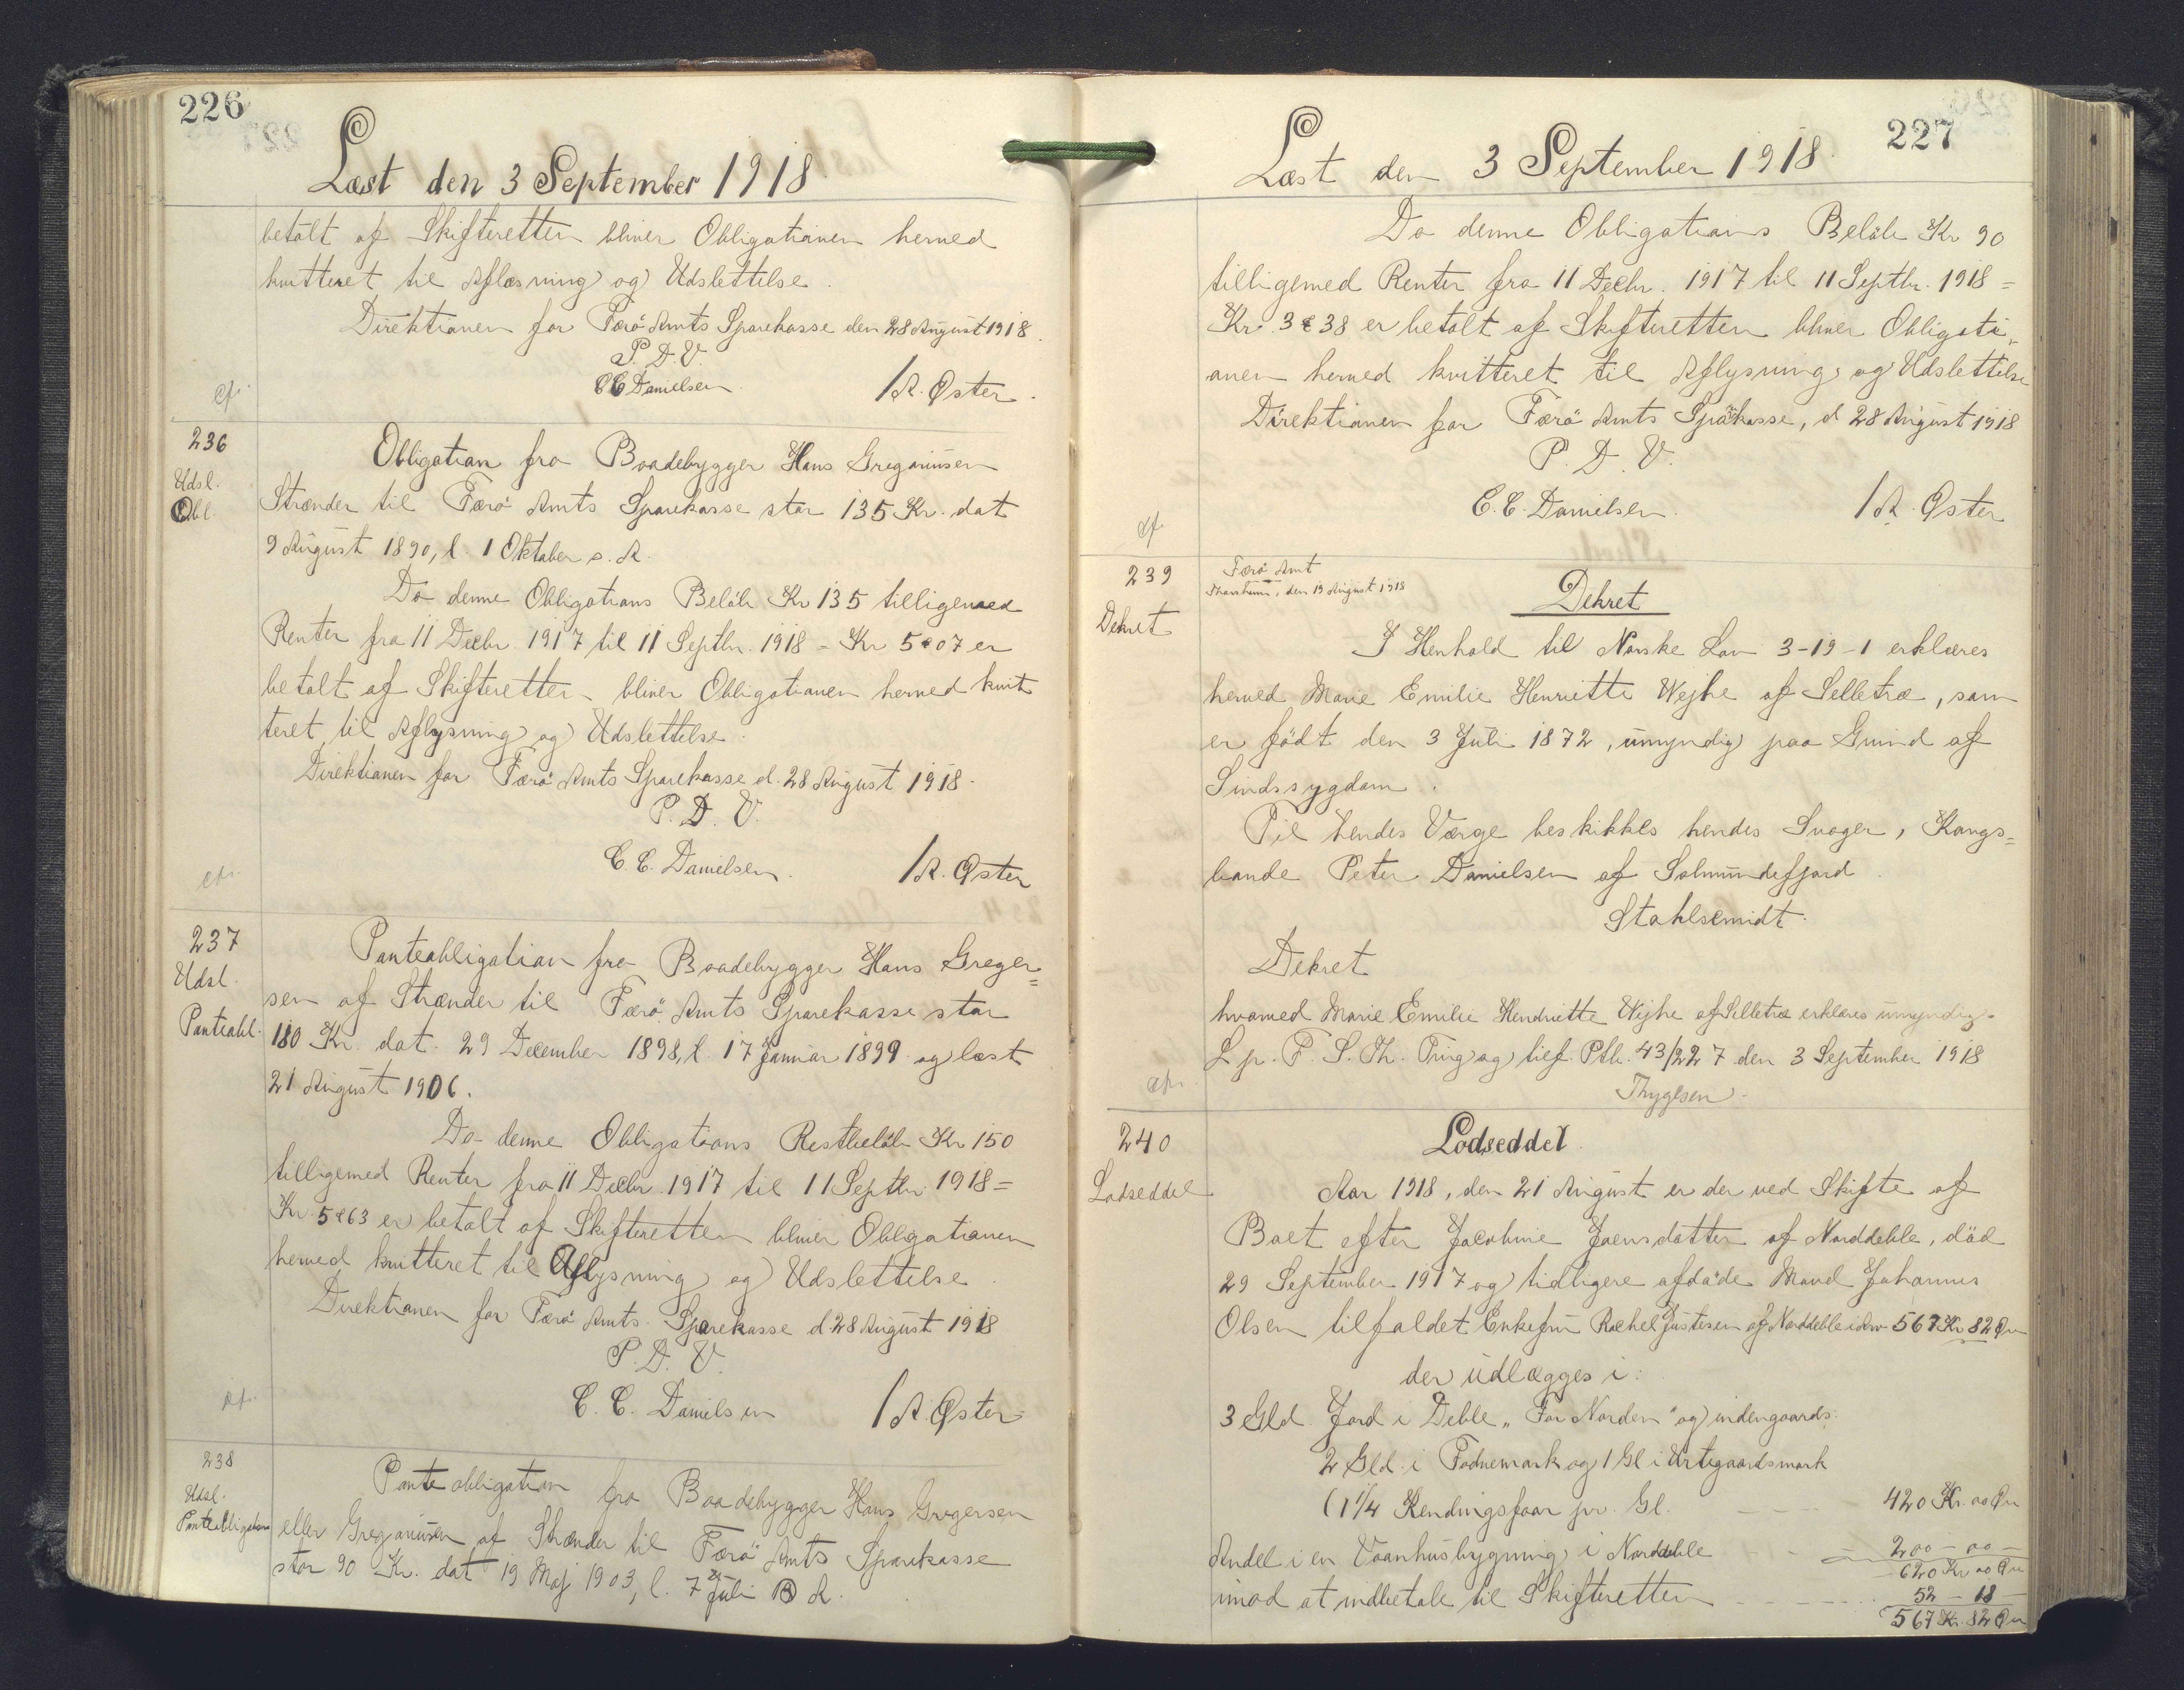 226
Læst den 3 September 1918
betalt af Skifteretten bliver Obligationen herved
kvitteret til Aflæsning og Udslettelse.
Direktionen for Færø Amts Sparekasse den 28 August 1918.
P. D. V.
C C Danielsen. / A. Øster.
236
Udsl.
Obl.
Obligation fra Baadebygger Hans Gregoriusen
Strænder til Færø Amts Sparekasse stor 135 Kr. dat
9 August 1890, l. 1 Oktober s. A.
Da denne Obligations Beløb Kr 135 tilligemed
Renter fra 11 Decbr. 1917 til 11 Septbr. 1918 = Kr 5 e 07 er
betalt af Skifteretten bliver Obligationen herved kvit
teret til Aflysning og Udslettelse.
Direktionen for Færø Amts Sparekasse d. 28 August 1918.
P. D. V.
C. C. Danielsen. / A. Øster
237
Udsl.
Panteobl.
Panteobligation fra Baadebygger Hans Greger=
sen af Strænder til Færø Amts Sparekasse stor
180 Kr. dat. 29 December 1898, l. 17 Januar 1899 og læst
21 August 1906.
Da denne Obligations Restbeløb Kr 150
tilligemed Renter fra 11 Decbr. 1917 til 11 Septbr. 1918 =
Kr. 5 e 63 er betalt af Skifteretten bliver Obligationen
herved kvitteret til Aflysning og Udslettelse.
Direktionen for Færø Amts Sparekasse d 28 August 1918
P. D. V.
C. C. Danielsen / A. Øster
238
Udsl.
Panteobligation
Panteobligation fra Baadebygger Hans Gregersen
eller Gregoriusen af Strænder til Færø Amts Sparekasse
stor 90 Kr. dat 19 Maj 1903, l. 7 Juli s A.
227
Læst den 3 September 1918.
Da denne Obligations Beløb Kr 90
tilligemed Renter fra 11 Decbr. 1917 til 11 Septbr. 1918 =
Kr. 3 e 38 er betalt af Skifteretten bliver Obligati„
onen herved kvitteret til Aflysning og Udslettelse
Direktionen for Færø Amts Spakasse, d 28 August 1918
P. D. V.
C. C. Danielsen. / A. Øster
239
Dekret
Færø Amt
Thorshavn, den 19 August 1918
Dekret
I Henhold til Norske Lov 3-19-1 erklæres
herved Marie Emilie Henriette Wejhe af Selletræ, som
er født den 3 Juli 1872, umyndig paa Grund af
Sindssygdom.
Til hendes Værge beskikkes hendes Svoger, Kongs=
bonde Peter Danielsen af Solmundefjord.
Stahlscmidt.
Dekret
hvorved Marie Emilie Hendriette Wejhe af Selletræ erklæres umyndig.
L p. F. S. Th. Ting og tilf. Ptb. 43/227 den 3 September 1918
Thygesen.
240
Lodseddel
Lodseddel.
Aar 1918, den 21 August er der ved Skifte af
Boet efter Jacobine Joensdatter af Norddeble, død
29 September 1917 og tidligere afdøde Mand Johannes
Olsen tilfaldet Enkefru Rachel Justesen af Norddeble i Arv 567 Kr 82 Øre
der udlægges i:
3 Gld. Jord i Deble „For Norden" og indengaards:
2 Gld. i Fodnemark og 1 Gl i Urtegaardsmark
(1 1/4 Kendingsfaar pr. Gl. 420 Kr. 00 Øre
Andel i en Vaanhusbygning i Norddeble 200 - 00 -
620 Kr 00 Øre
imod at indbetale til Skifteretten 52 - 18 -
567 Kr. 82 Øre